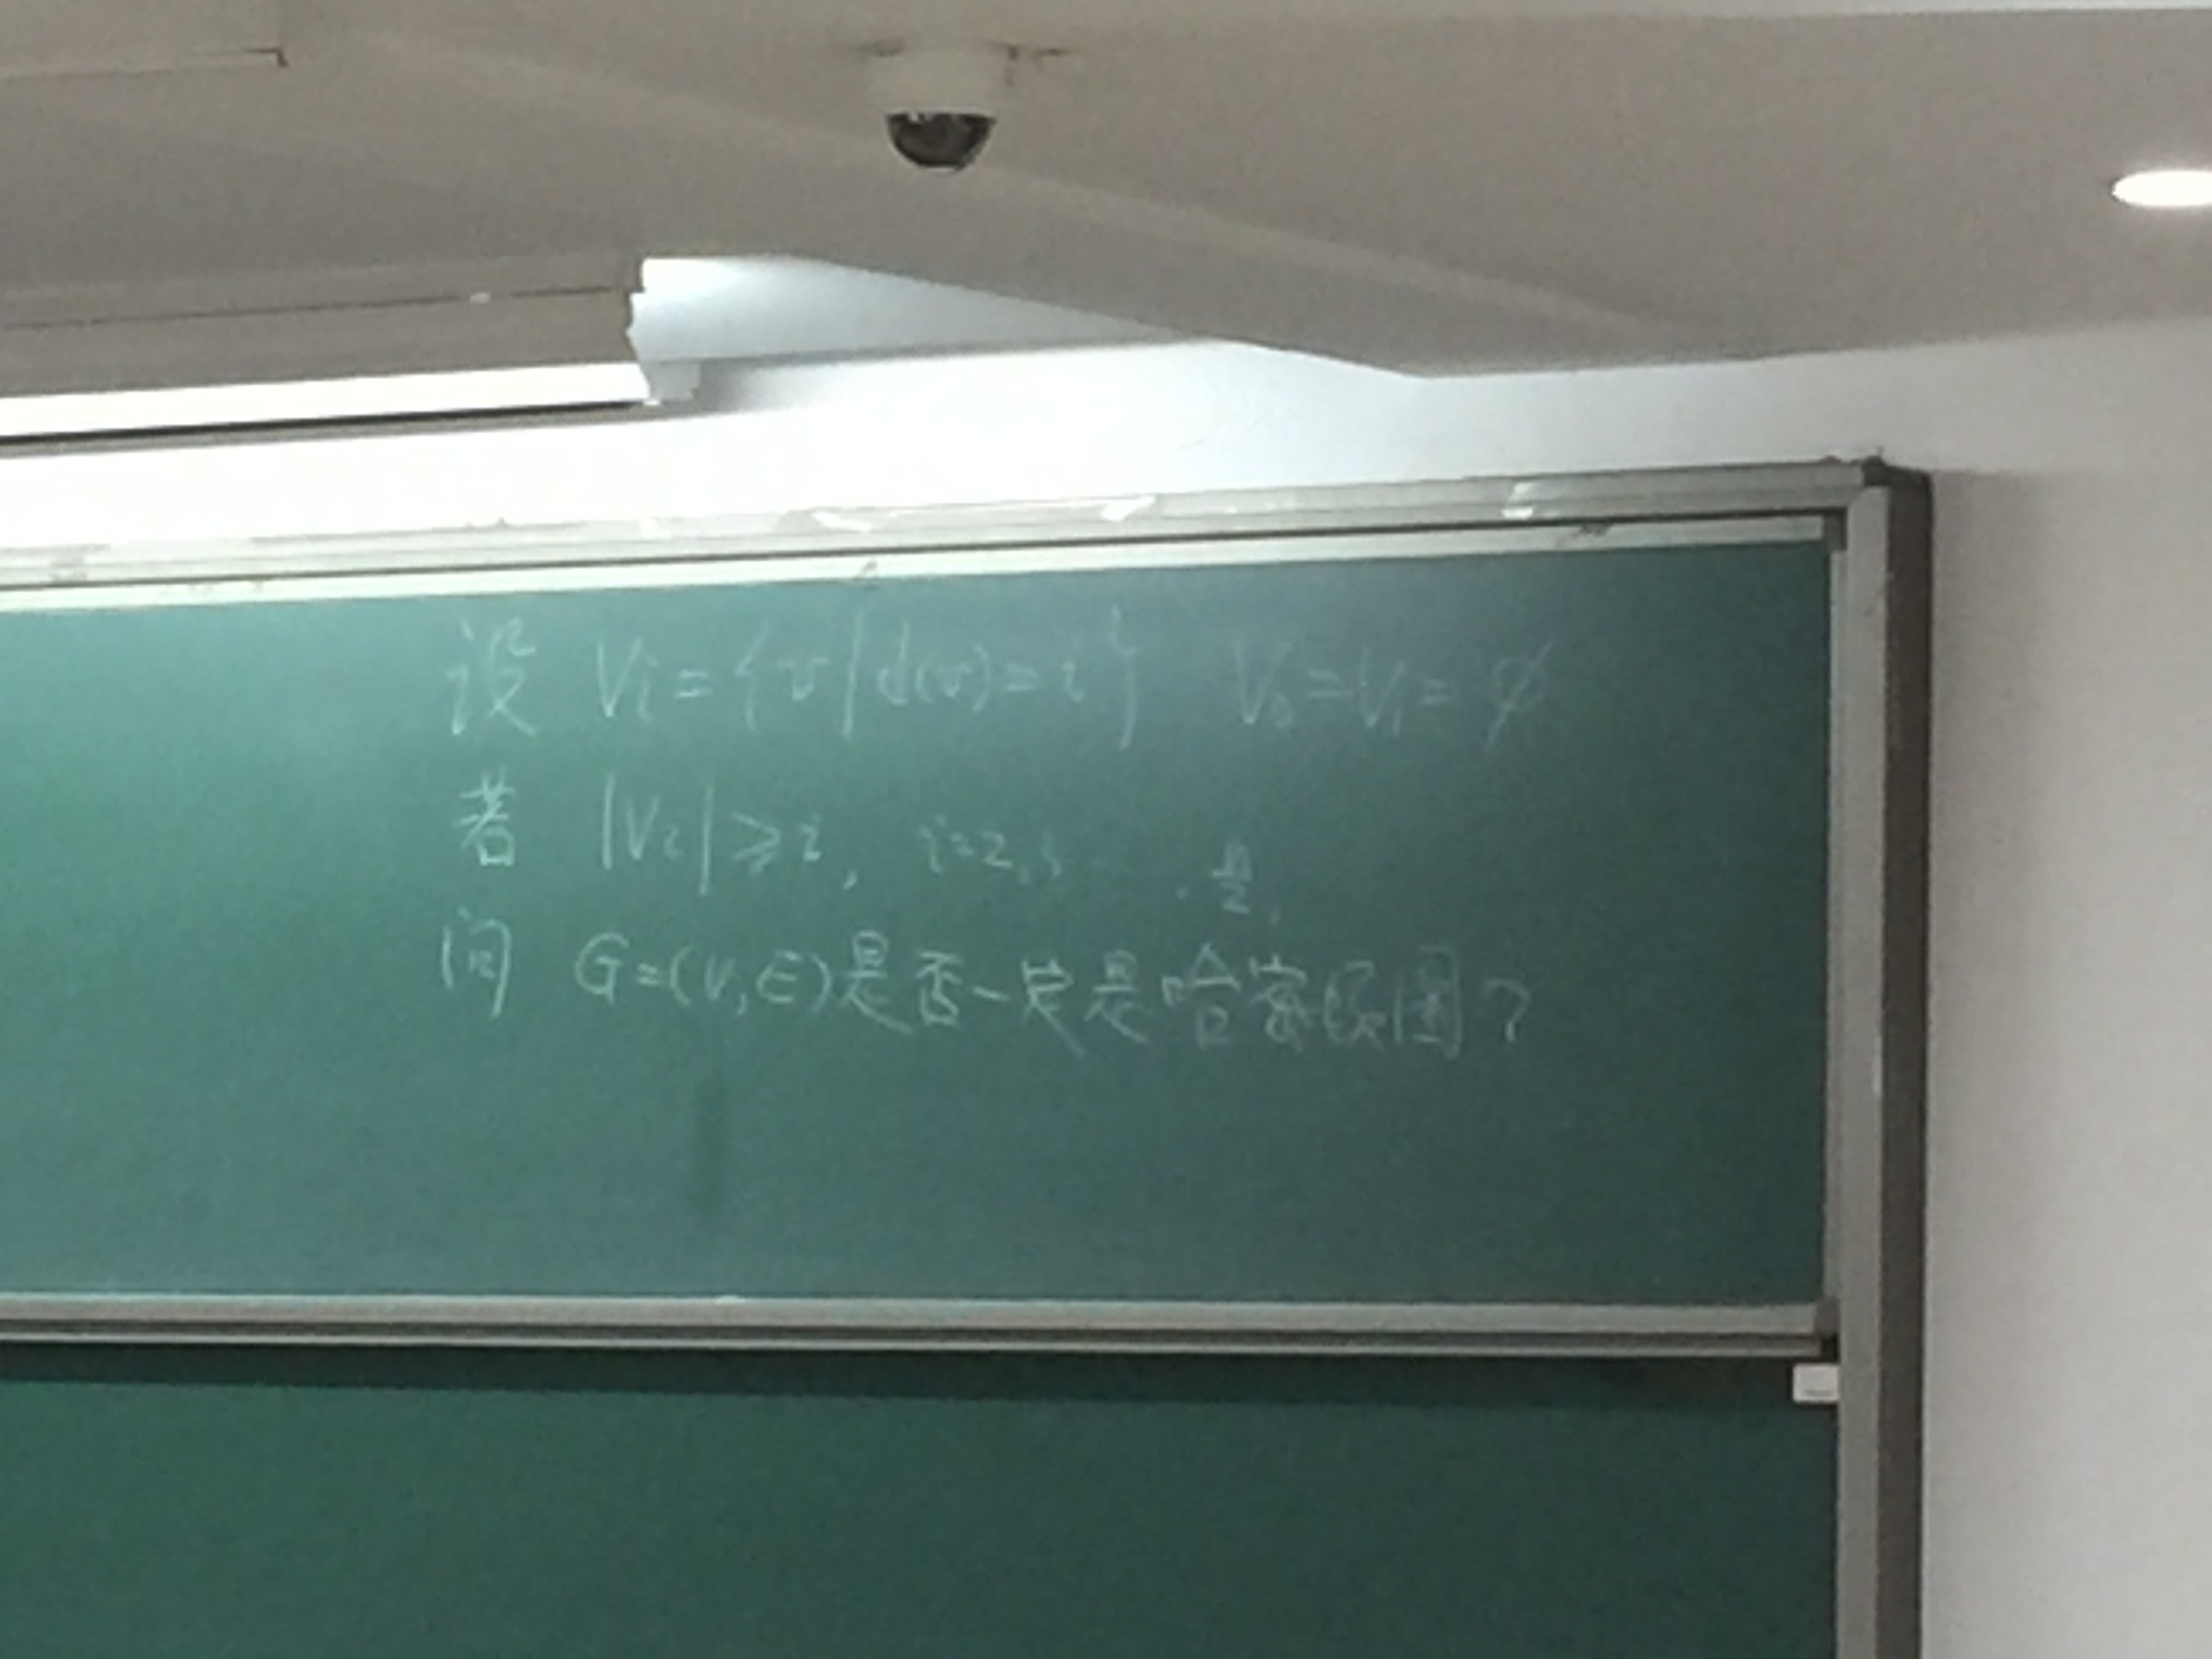 设 Vi={v|d(v)=i} V₀=V₁=∅
若 |Vi|≥i, i=2,3 ... , n/2,
问 G=(V,E)是否一定是哈密顿图?